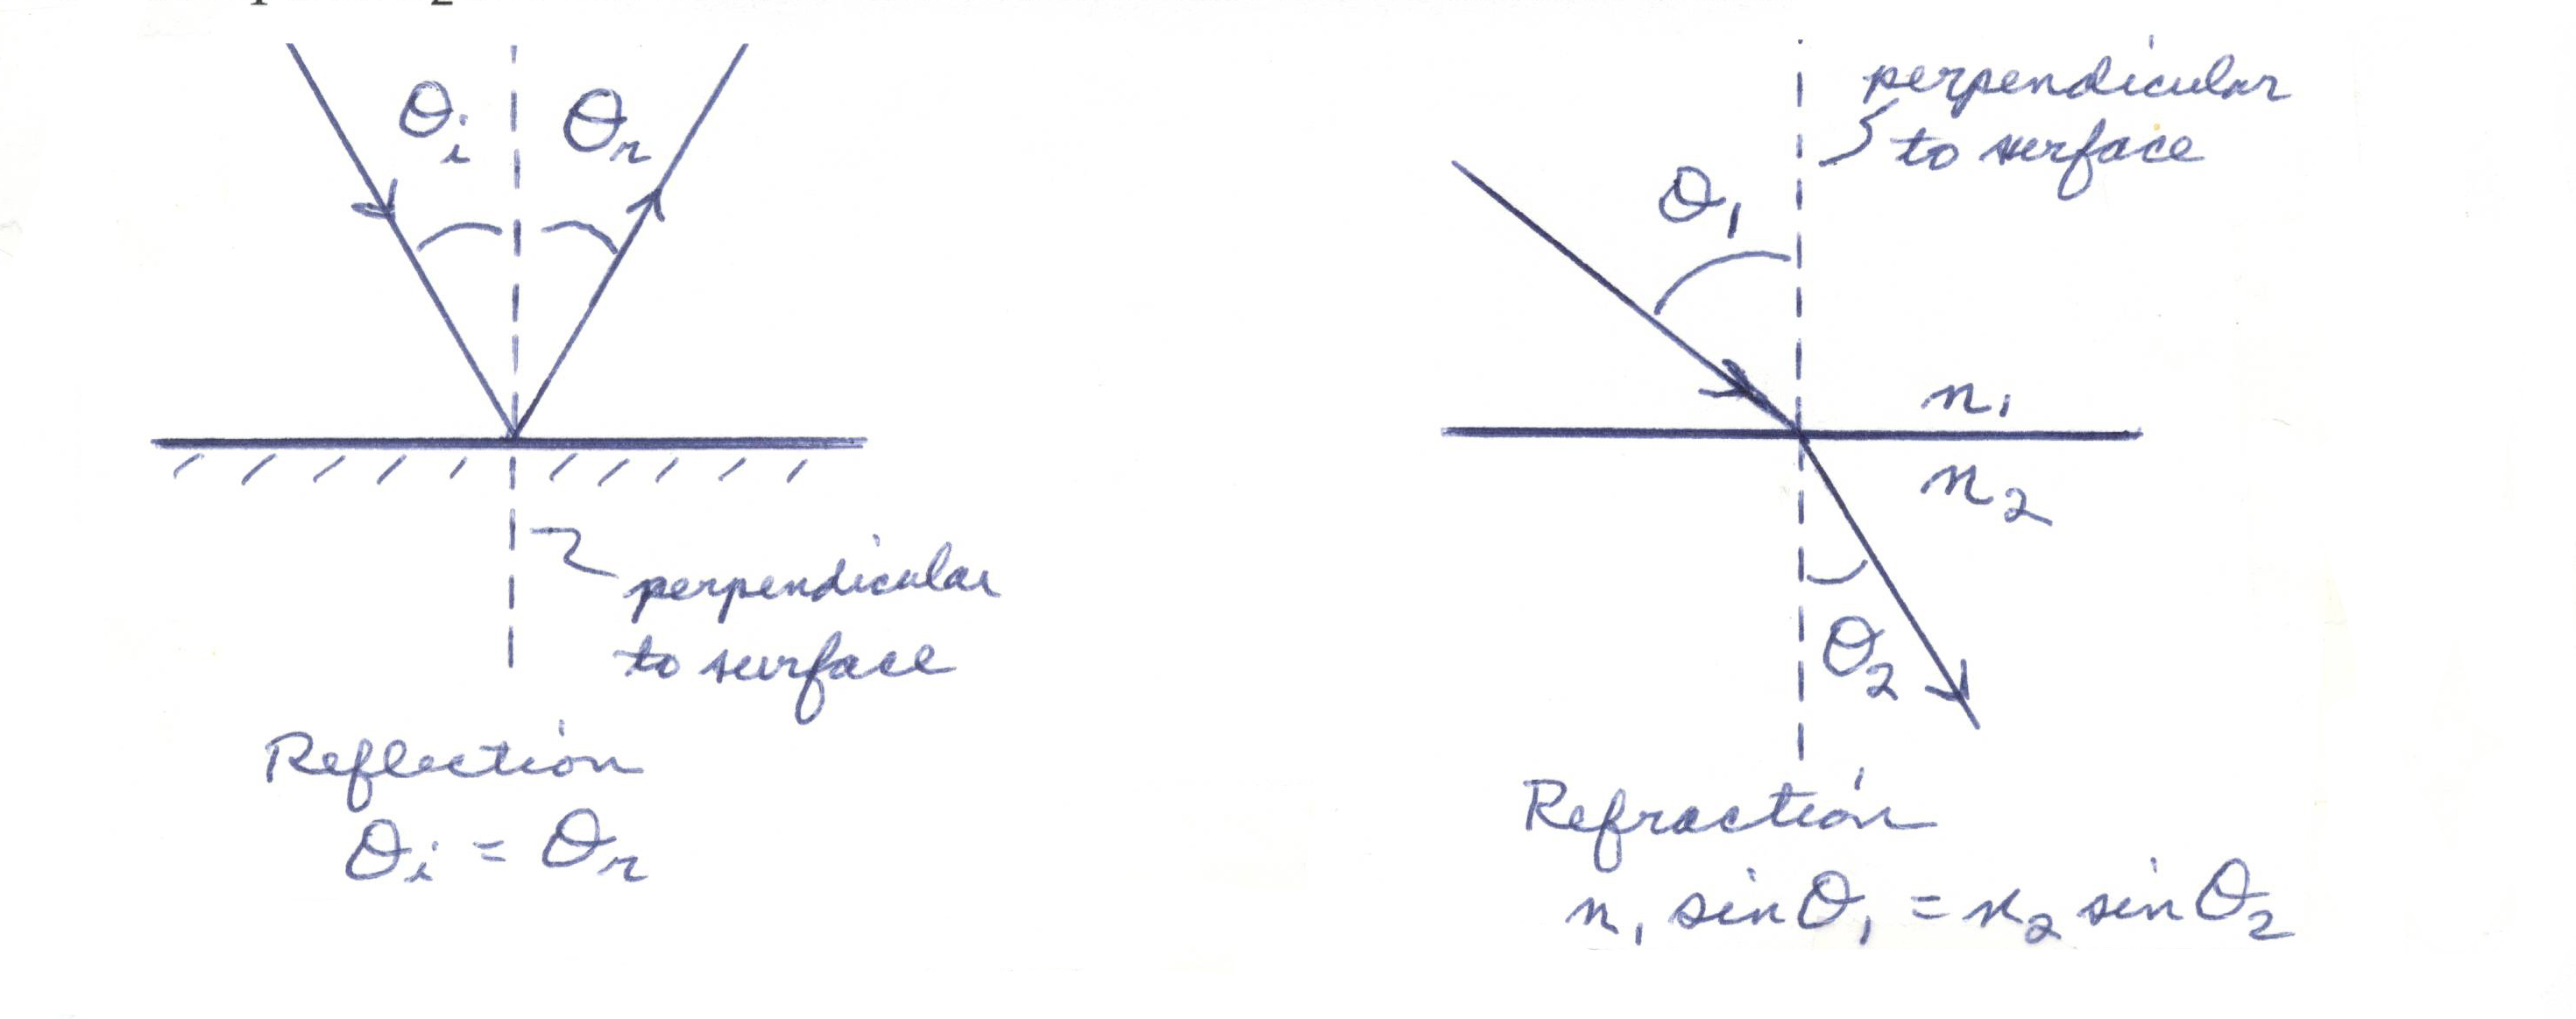 θi
θr
perpendicular
to surface
Reflection
θi = θr
perpendicular
to surface
θ1
n1
n2
θ2
Refraction
n1 sin θ1 = n2 sin θ2